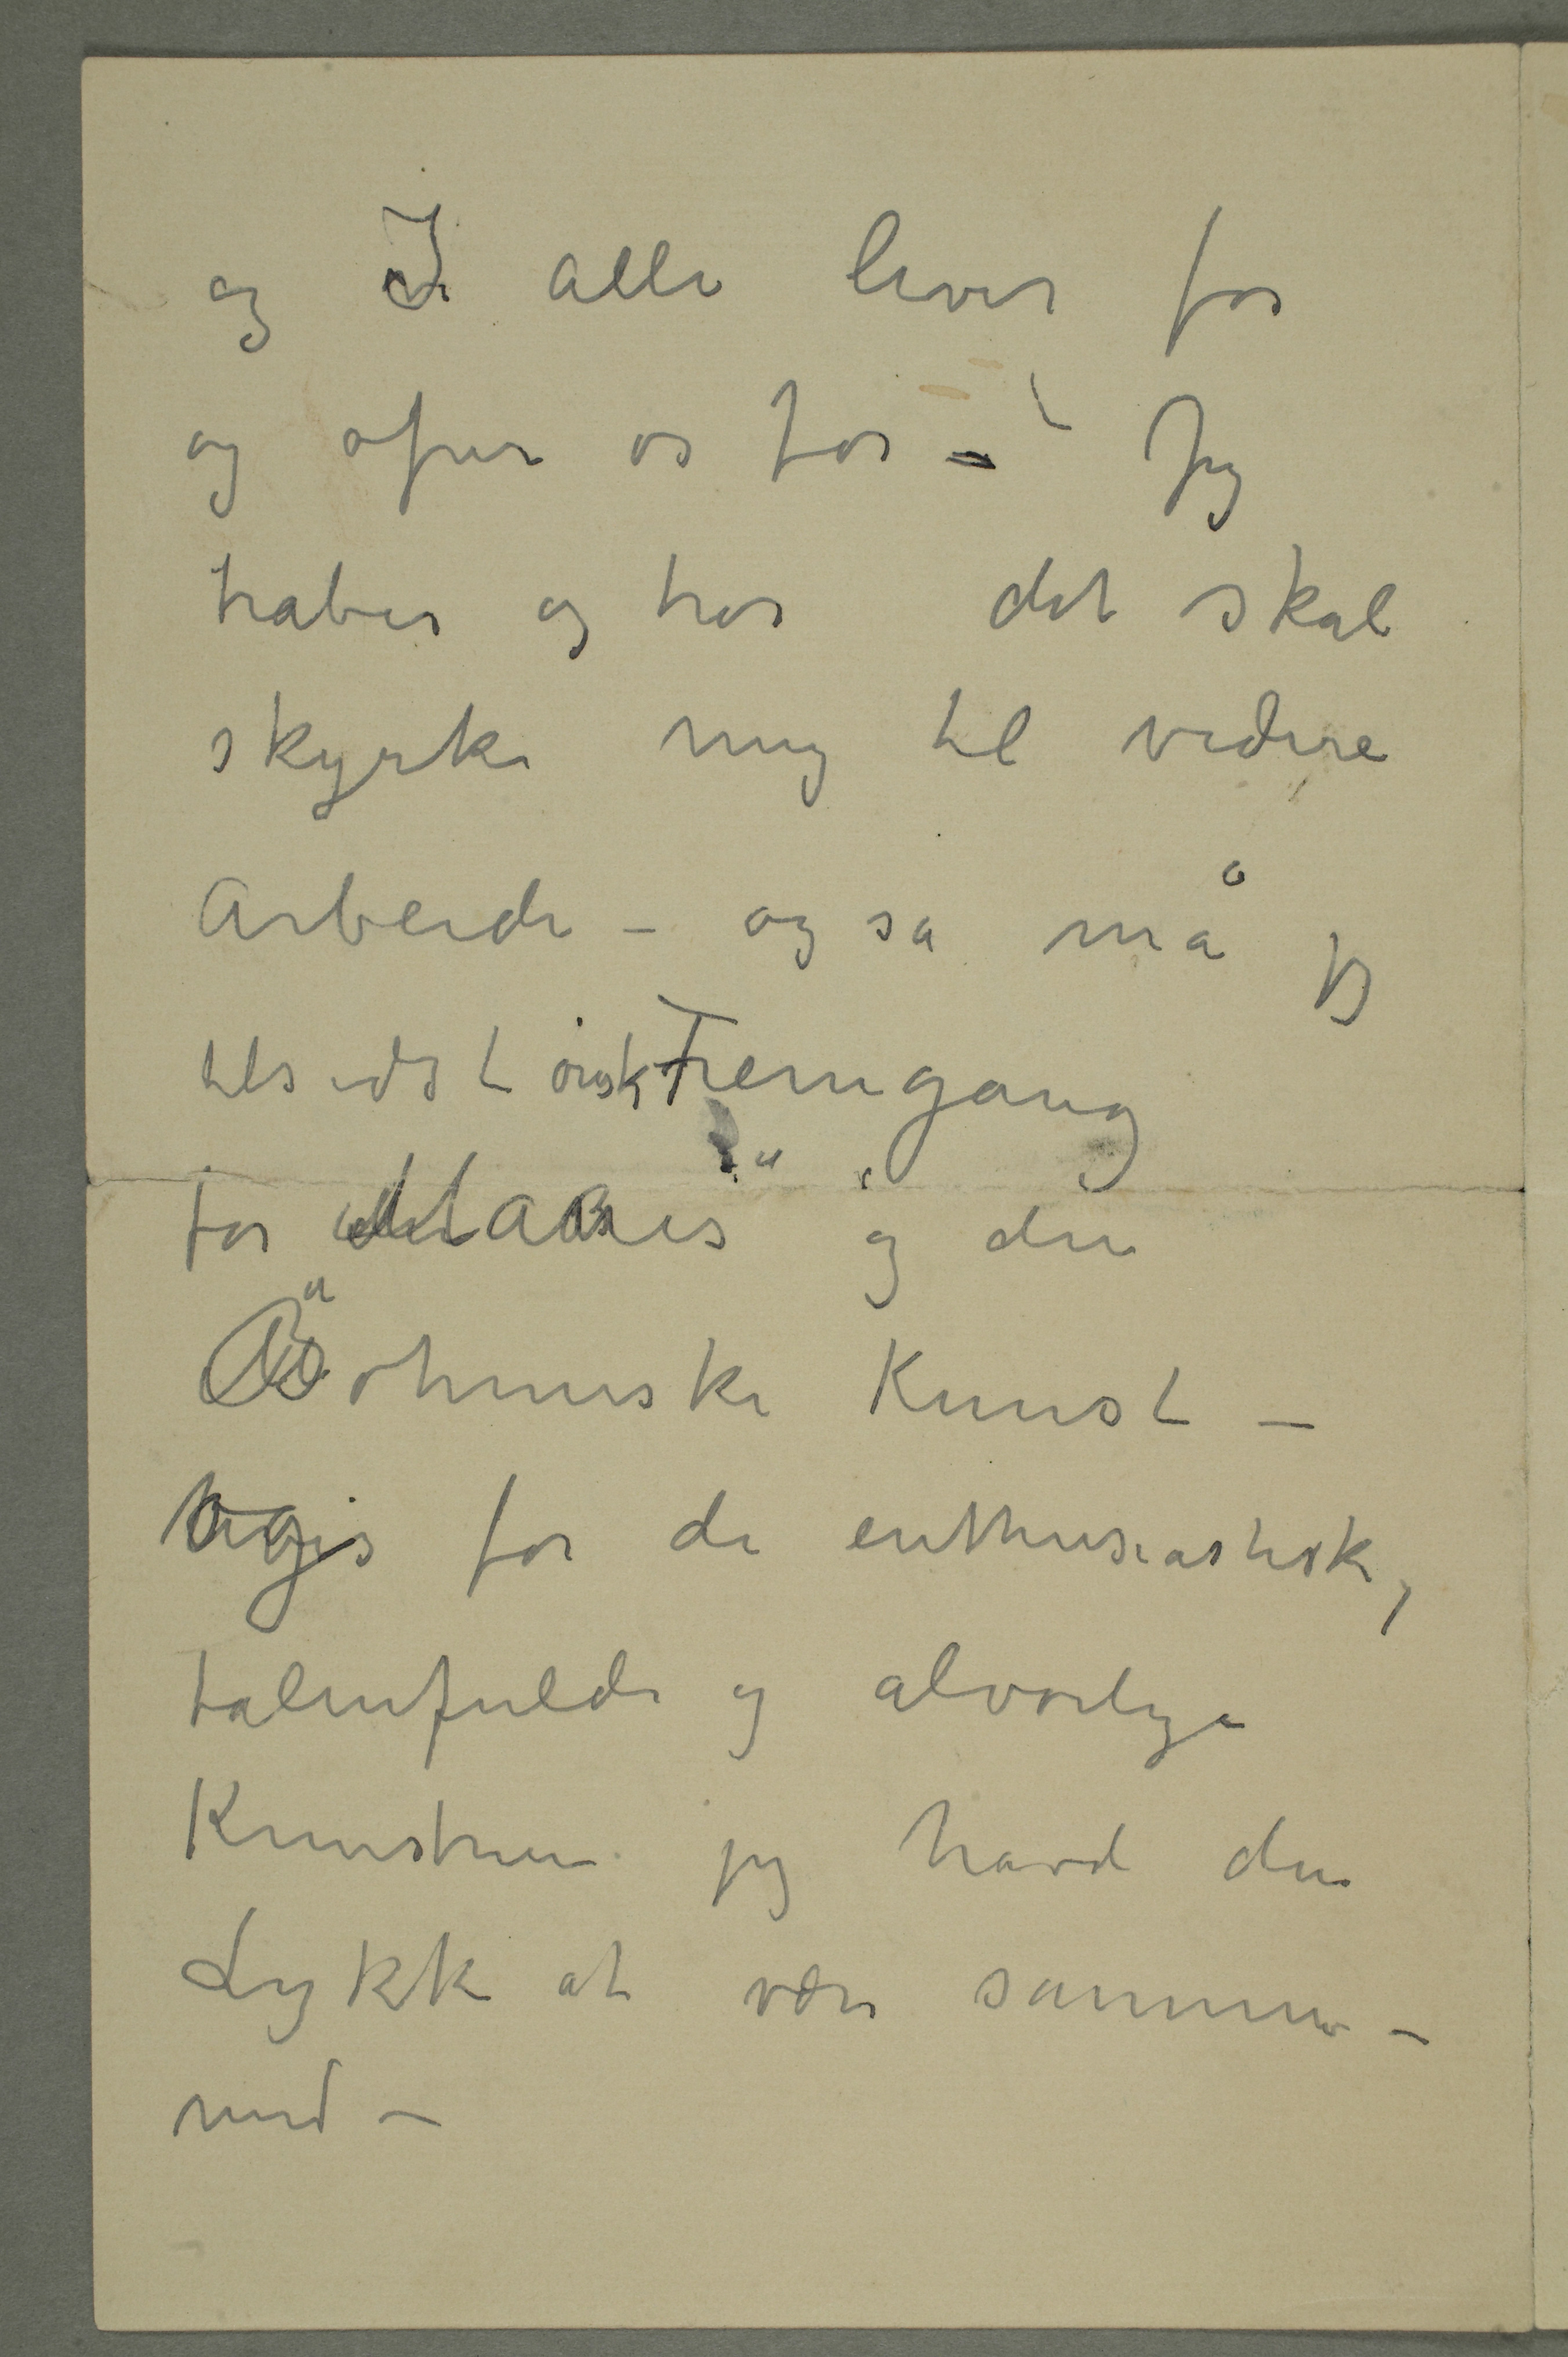 og I alle lever for
og ofrer os for – Jeg
håber og tror det skal
skyrke mig til videre
Arbeide – og så må jeg
tilsidst ønske Fremgang
for Manes" og den
Böhmiske Kunst –
og for de enthusiastiske,
talenfulde og alvorlige
Kunstnere jeg havde den
Lykke at være sammen –
med –